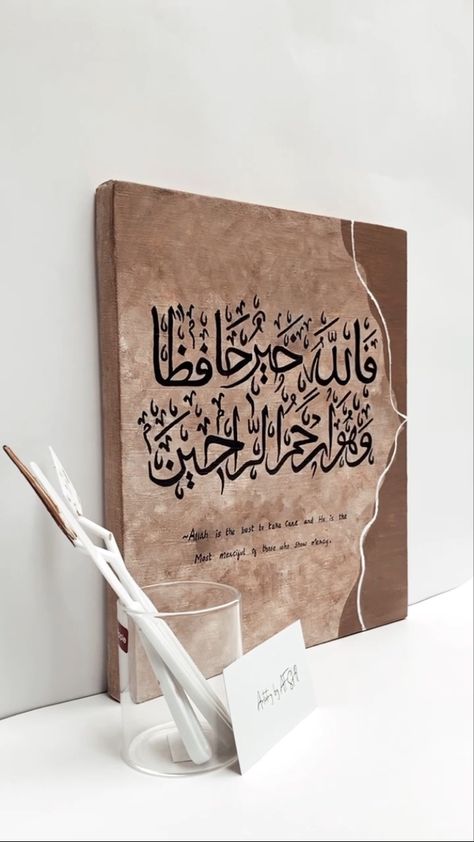 فَاللَّهُ خَيْرٌ حَافِظًا
وَهُوَ أَرْحَمُ الرَّاحِمِينَ
~Allah is the best to take care and He is the
Most merciful of those who show mercy.